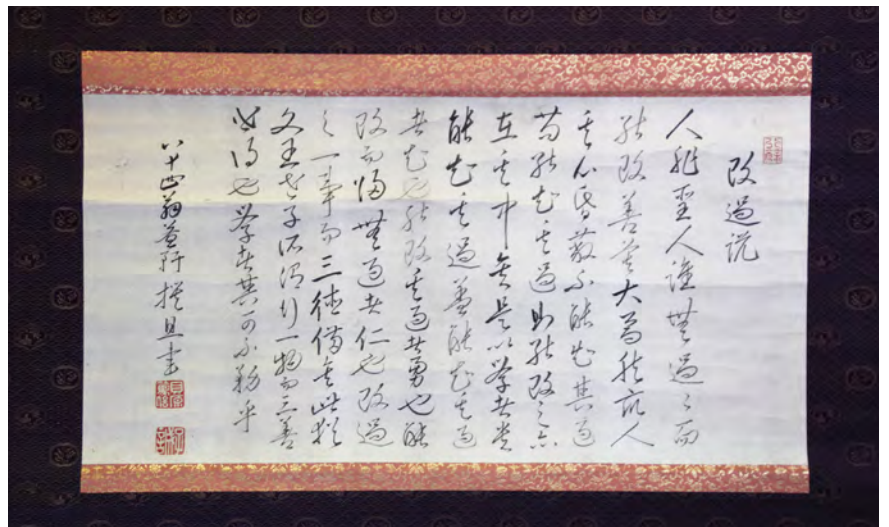 改過説
人非聖人誰無過〻而
能改善莫大焉然衆人
其心昏蔽不能知其過
苟能知其過則能改之亦
在其中矣是以学者貴
能知其過蓋能知其過
者知也能改其過者勇也能
改而無過者仁也改過
之一事而三徳備矣此猶
文王世子所謂行一物而三善
皆得也学者其可不務乎
八十四翁益軒撰且書